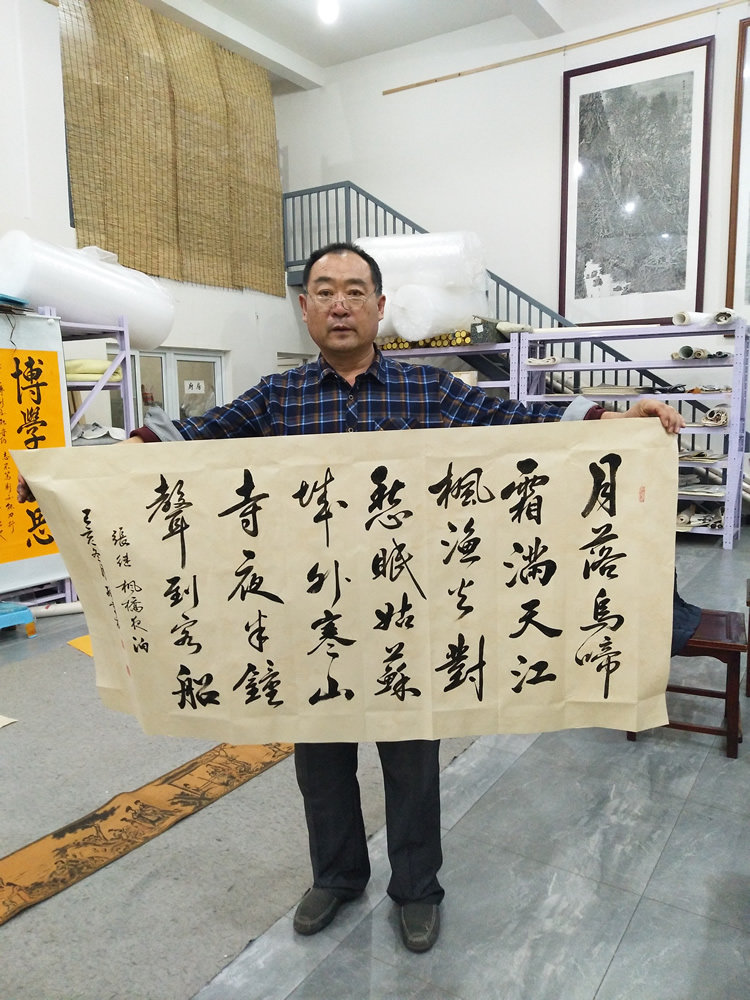 月落烏啼
霜滿天江
楓漁火對
愁眠姑蘇
城外寒山
寺夜半鐘
聲到客船
張继楓橋夜泊
己亥冬月
博學
思